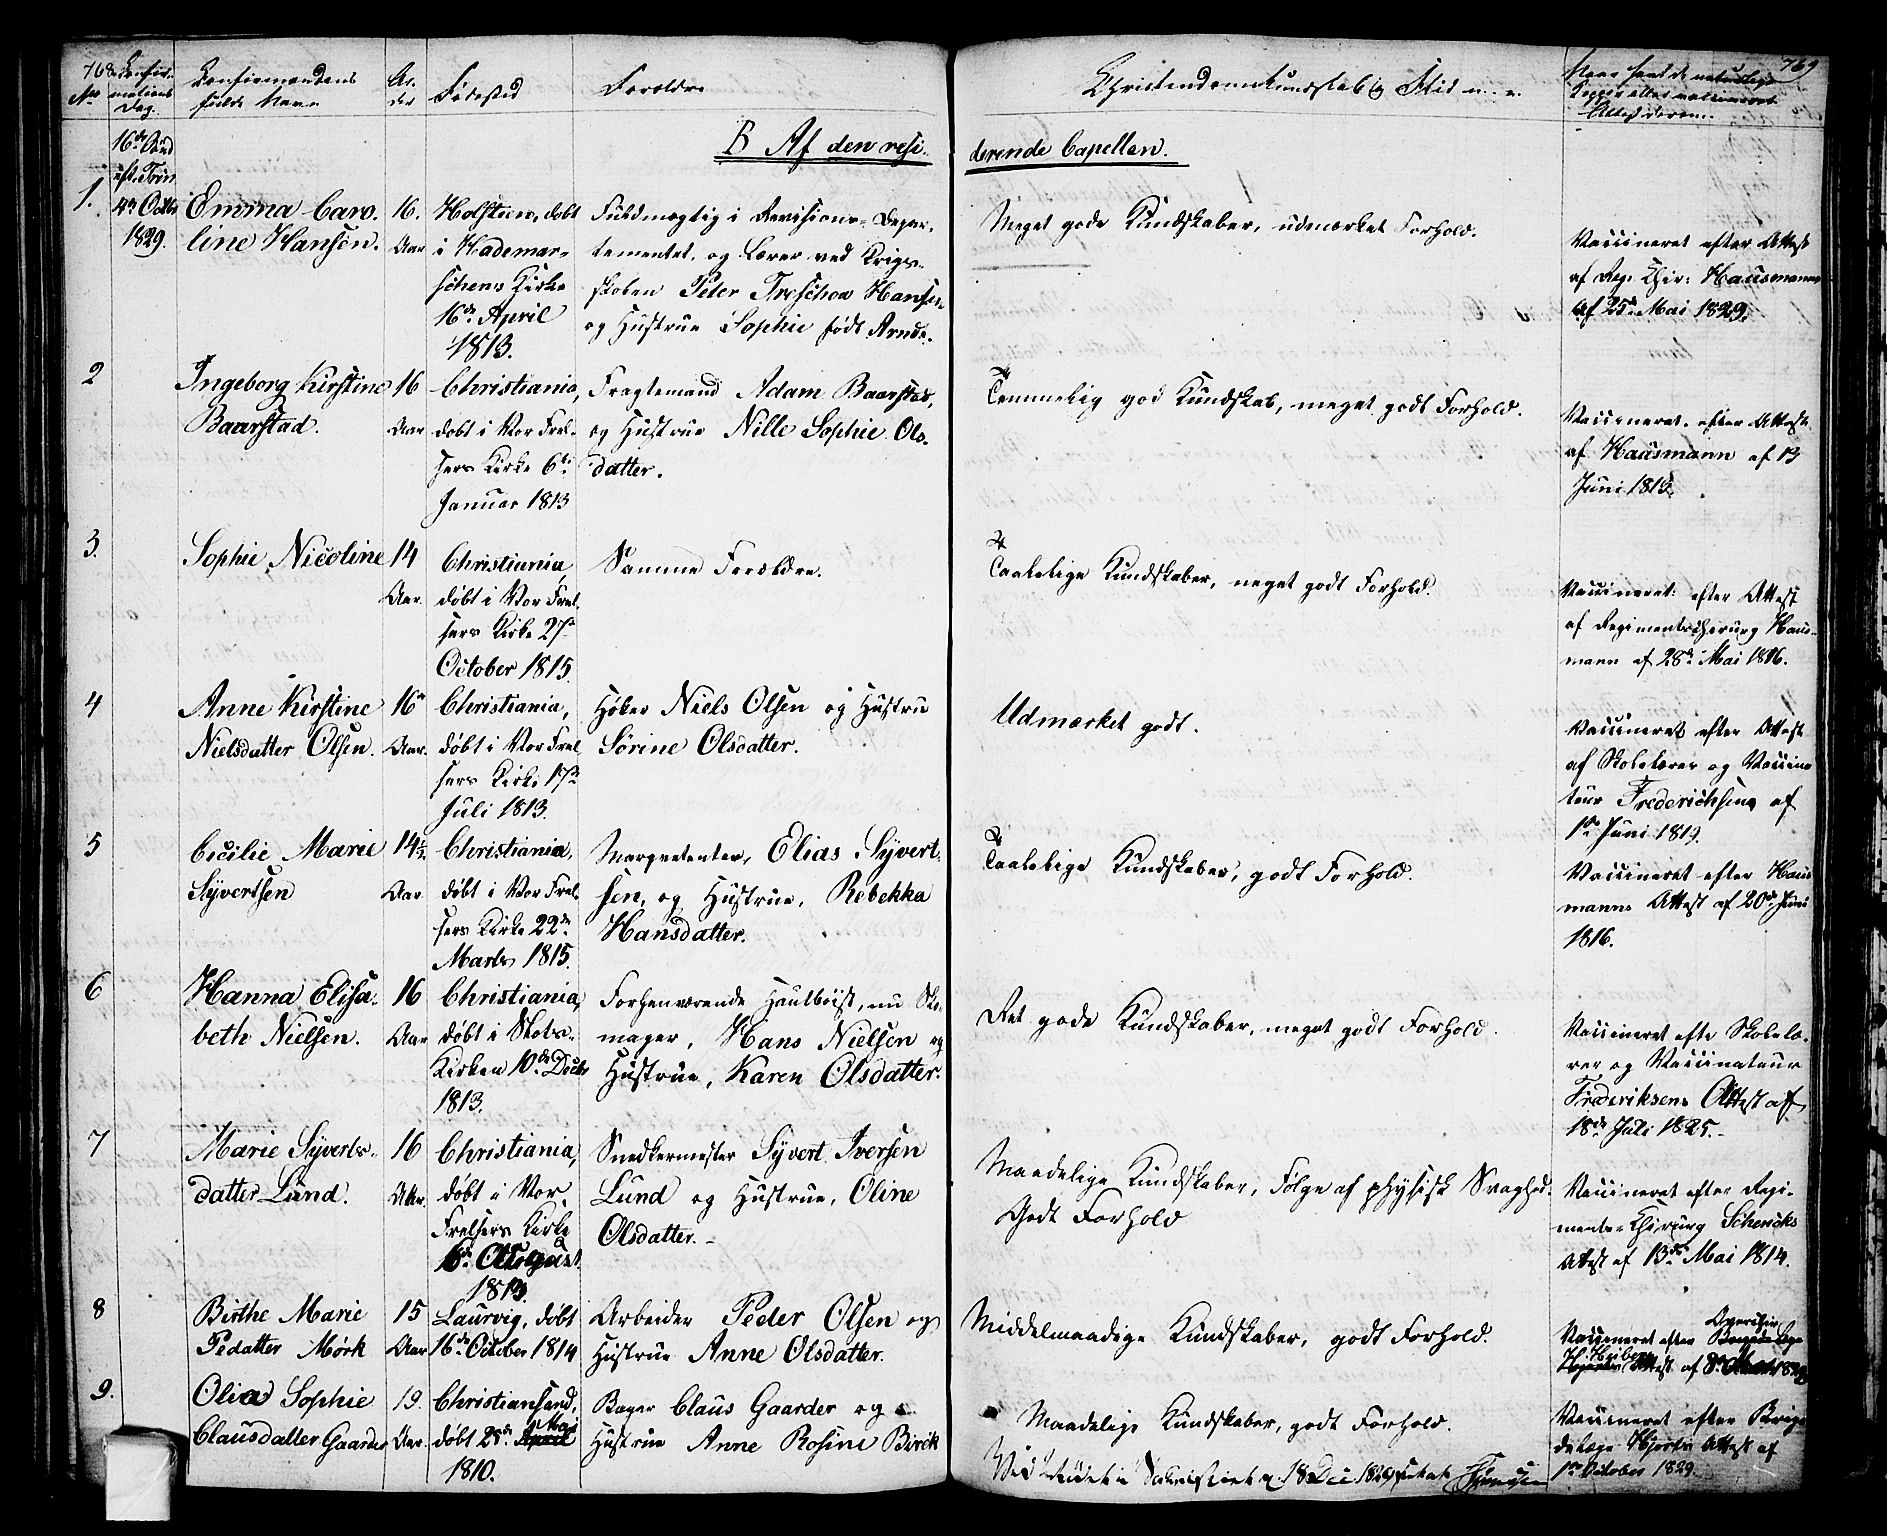 768
769
No
Confir-
mations
Dag.
Confirmandens
fulde Navn
Al-
der
Fødested
Forældre
Christendomskundskab og Flid
Naar havt de naturlige
Kopper eller vaccineret
Attest derom.
B Af den resi-
derende Capellan.
16de Sønd
eft. Trin
4de Octbr
1829.
1.
Emma Caro-
line Hansen.
16.
Aar
Holsteen, døbt
i Hademar-
schens Kirke
16de April
1813.
Fuldmægtig i Revisions-Depar-
tementet, og Lærer ved Krigs-
skolen Peter Treschow Hansen
og Hustrue Sophie født Arndt.
Meget gode Kundskaber, udmærket Forhold.
Vaccineret efter Attest
af Reg: Chir: Hausmann
af 25de Mai 1829.
2
Ingeborg Kirstine
Baarstad.
16
Aar
Christiania,
døbt i Vor Frel-
sers Kirke 6te
Januar 1813
Fragtemand Adam Baarstad,
og Hustrue Nille Sophie Ols-
datter.
Temmelig god Kundskab, meget godt Forhold.
Vaccineret efter Attest
af Hausmann af 13
Juni 1815.
3.
Sophie Nicoline
14
Aar.
Christiania,
døbt i Vor Frel-
sers Kirke 27de
October 1815.
Samme Forældre.
Taalelige Kundskaber, meget godt Forhold.
Vaccineret efter Attest
af Regimentschirurg Haus-
mann af 28de Mai 1816.
4
Anne Kirstine
Nielsdatter Olsen.
16
Aar.
Christiania,
døbt i Vor Frel-
sers Kirke 17de
Juli 1813.
Høker Niels Olsen og Hustru
Sörine Olsdatter.
Udmærket godt.
Vaccineret efter Attest
af Skolelærer og Vaccina-
teur Frederichsen af
1ste Juni 1819.
5
Cecilie Marie
Syvertsen
14½
Aar
Christiania,
døbt i Vor Frel-
sers Kirke 22de
Marts 1815.
Marquetenter, Elias Syvert-
sen, og Hustrue, Rebekka
Hansdatter.
Taalelige Kundskaber, godt Forhold.
Vaccineret efter Haus-
manns Attest af 20de Juni
1816.
6
Hanna Elisa-
beth Nielsen.
16
Aar
Christiania,
døbt i Slots-
Kirken 10de Decbr
1813.
Forhenværende Hautboist, nu Sko-
mager, Hans Nielsen og
Hustrue, Karen Olsdatter.
Ret gode Kundskaber, meget godt Forhold.
Vaccineret efter Skolelæ-
rer og Vaccinateur
Frederiksens Attest af
18de Juli 1825.
7
Marie Syverts-
datter Lund.
16
Aar.
Christiania,
døbt i Vor
Frelsers Kirke
August
1813.
Snedkermester Syvert Iversen
Lund og Hustrue, Oline
Olsdatter.
Maadelige Kundskaber, Følge af physisk Svaghed.
Godt Forhold
Vaccineret efter Regi-
ments-Chirurg Schencks
Attest af 13de Mai 1814.
8
Birthe Marie
Pedatter Mørk
15
Aar
Laurvig, døbt
16de October 1814
Arbeider Peder Olsen og
Hustrue Anne Olsdatter.
Middelmaadige Kundskaber, godt Forhold.
Vaccineret efter
Attest af
9.
Olia Sophie
Clausdatter Gaarder
19.
Aar.
Christiansand,
døbt 28de Mai
1810.
Bager Claus Gaarder og
Hustrue Anne Rosine Birck
Maadelige Kundskaber, godt Forhold.
Vaccineret efter Briga-
delæge Hjorts Attest af
1ste October 1829.